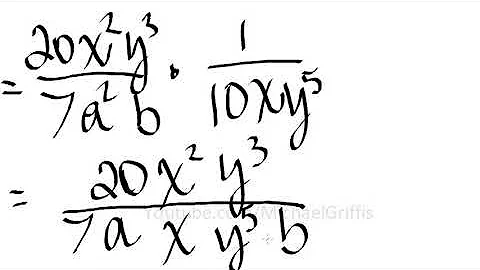 = 20x²y³ / 7a²b · 1 / 10xy⁵
= 20x²y³ / 7a x y⁵ b
Youtube.com/MichaelGriffis